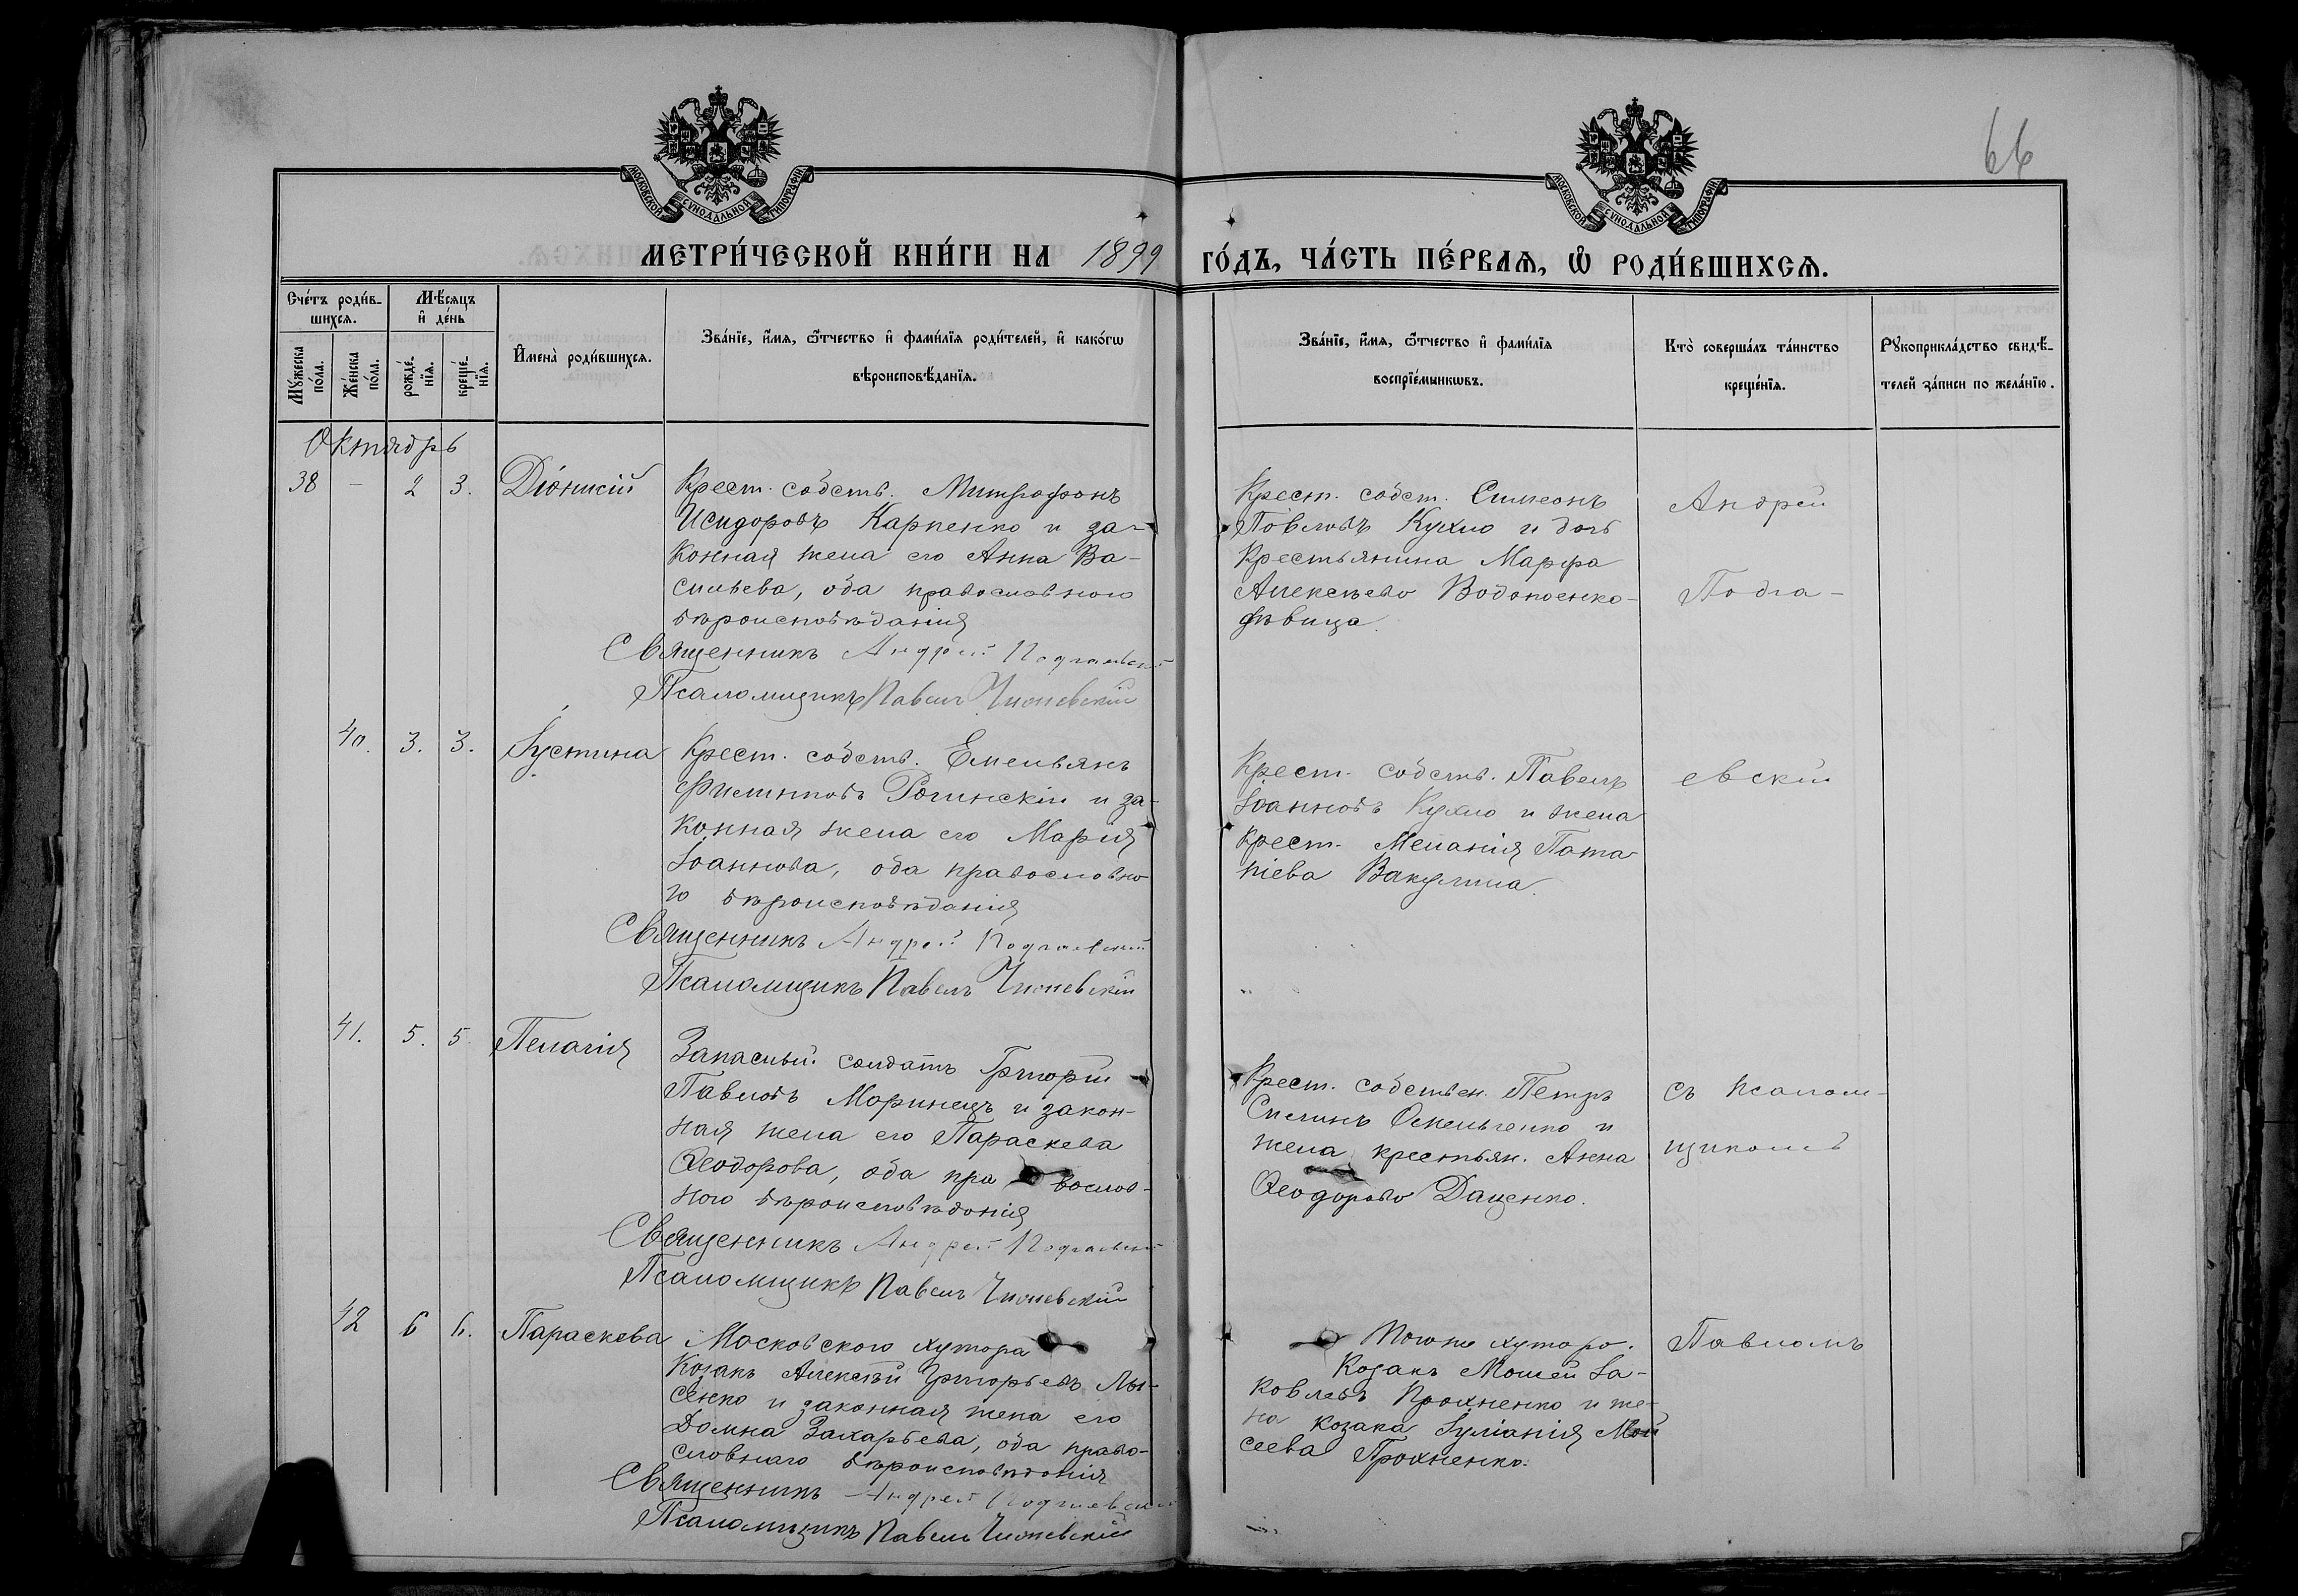 66
МОСКОВСКОЙ СѴНОДАЛЬНОЙ ТИПОГРАФІИ
МОСКОВСКОЙ СѴНОДАЛЬНОЙ ТИПОГРАФІИ
МЕТРИ́ЧЕСКОЙ КНИ́ГИ НА 1899 ГО́ДЪ, ЧА́СТЬ ПЕ́РВАѦ, Ѡ РОДИ́ВШИХСѦ.
Сче́тъ роди́в-
шихсѧ.
Мѣ́сѧцъ
и҆ де́нь
Мꙋ́жеска
по́ла.
Же́нска
по́ла.
рожде́-
нїѧ.
креще́-
нїѧ.
И҆мена̀ роди́вшихсѧ.
Зва́нїе, и҆́мѧ, ѻ҆́тчество и҆ фами́лїѧ роди́телей, и҆ како́гѡ
вѣроисповѣ́данїѧ.
Зва́нїе, и҆́мѧ, ѻ҆́тчество и҆ фами́лїѧ
воспрїе́мникѡвъ.
Кто̀ соверша́лъ та́инство
креще́нїѧ.
Рꙋкоприкла́дство свидѣ́-
телей за́писи по жела́нїю.
Октябрь
38 - 2 3. Діонисій
Крест. собств. Митрофанъ
Исидоровъ Карпенко и за-
конная жена его Анна Ва-
сильева, оба православного
вѣроисповѣданія
Священникъ Андрей Подгаевскій
Псаломщикъ Павелъ
Крест. собст. Симеонъ
Павловъ Кухло и дочь
крестьянина Марфа
Алексѣева Водопоенко-
дѣвица.
Андрей
Подга-
40. 3. 3. Іустина
Крест. собств. Емельянъ
Филиповъ Рогинскій и за-
конная жена его Марія
Іоаннова, оба православно-
го вѣроисповѣданія
Священникъ Андрей Подгаевскій
Псаломщикъ Павелъ
Крест. собств. Павелъ
Іоанновъ Кухло и жена
крест. Меланія Пота-
піева Вакулина.
евскій
41. 5. 5 Пелагія
Запасный солдатъ Григорій
Павловъ Маринецъ и закон-
ная жена его Параскева
Ѳеодорова, оба пра вослав-
ного вѣроисповѣданія
Священникъ Андрей Подгаевскій
Псаломщикъ Павелъ
Крест. собствен. Петръ
Омельченко и
жена крестьян. Анна
Ѳеодорова Даценко.
съ псалом-
щикомъ
42 6 6. Параскева
Московского хутора
Козакъ Алексѣй Григорьевъ Лы-
сенко и законная жена его
Домна Захарьева, оба право-
славнаго вѣроисповѣданія
Священникъ Андрей Подгаевскій
Псаломщикъ Павелъ
Того же хутора.
Козакъ Моисей Іа-
ковлевъ Прохненко и же-
на козака Іуліанія Мои
сеева Прохненко.
Павломъ